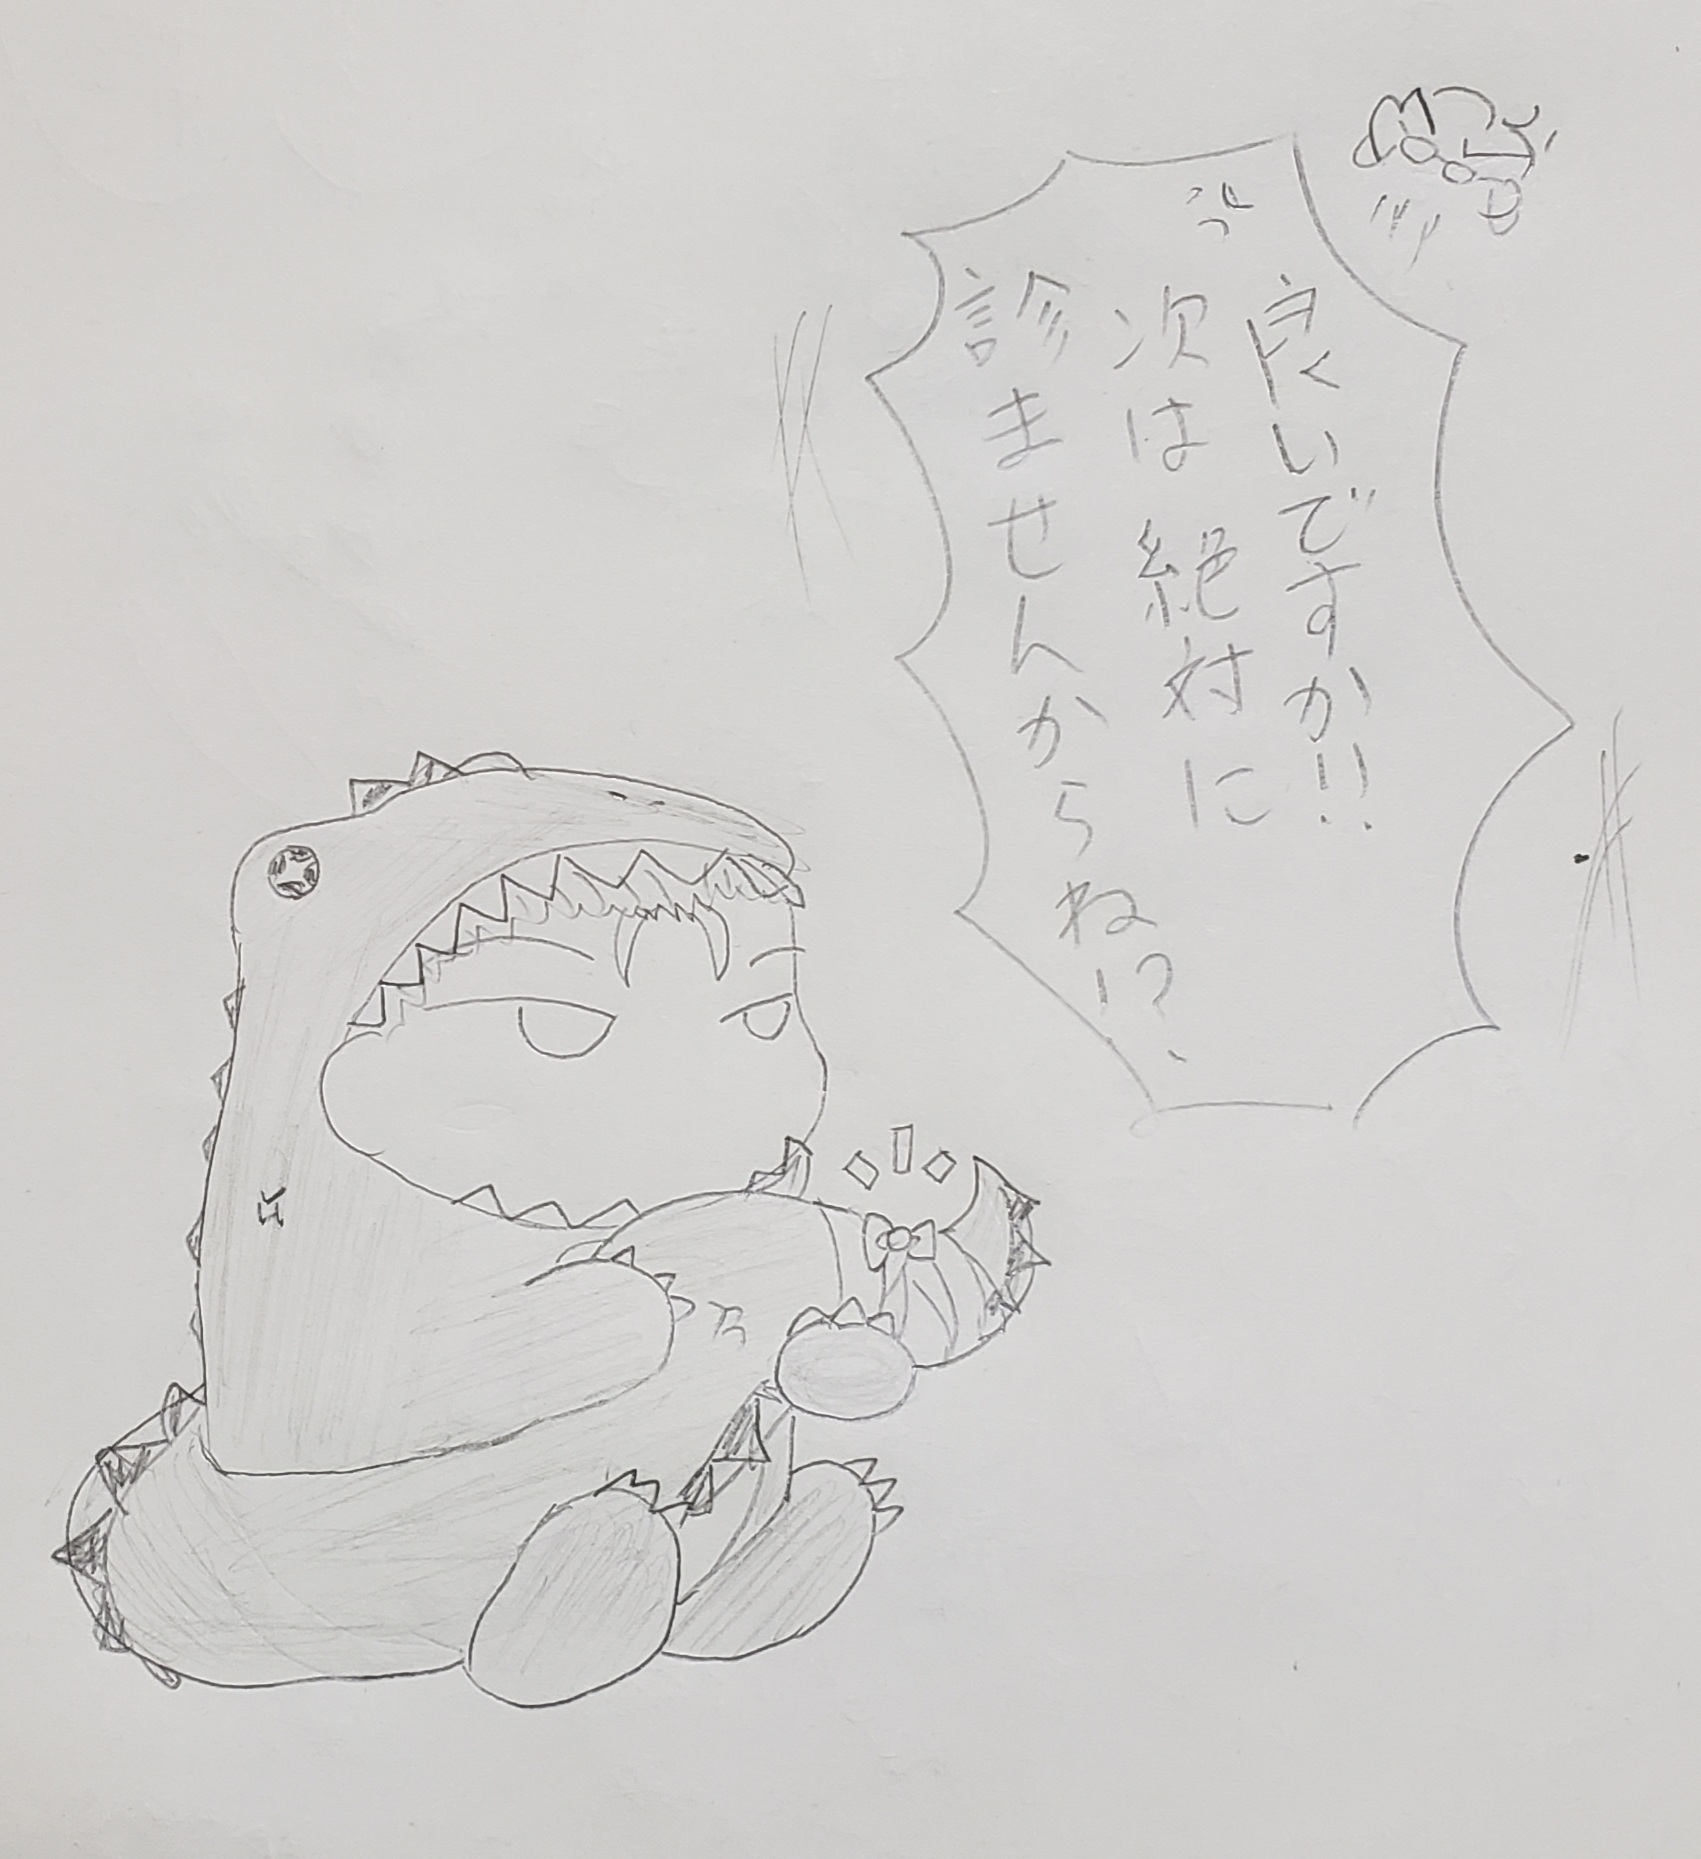 良いですか!!
次は絶対に
診ませんからね!?